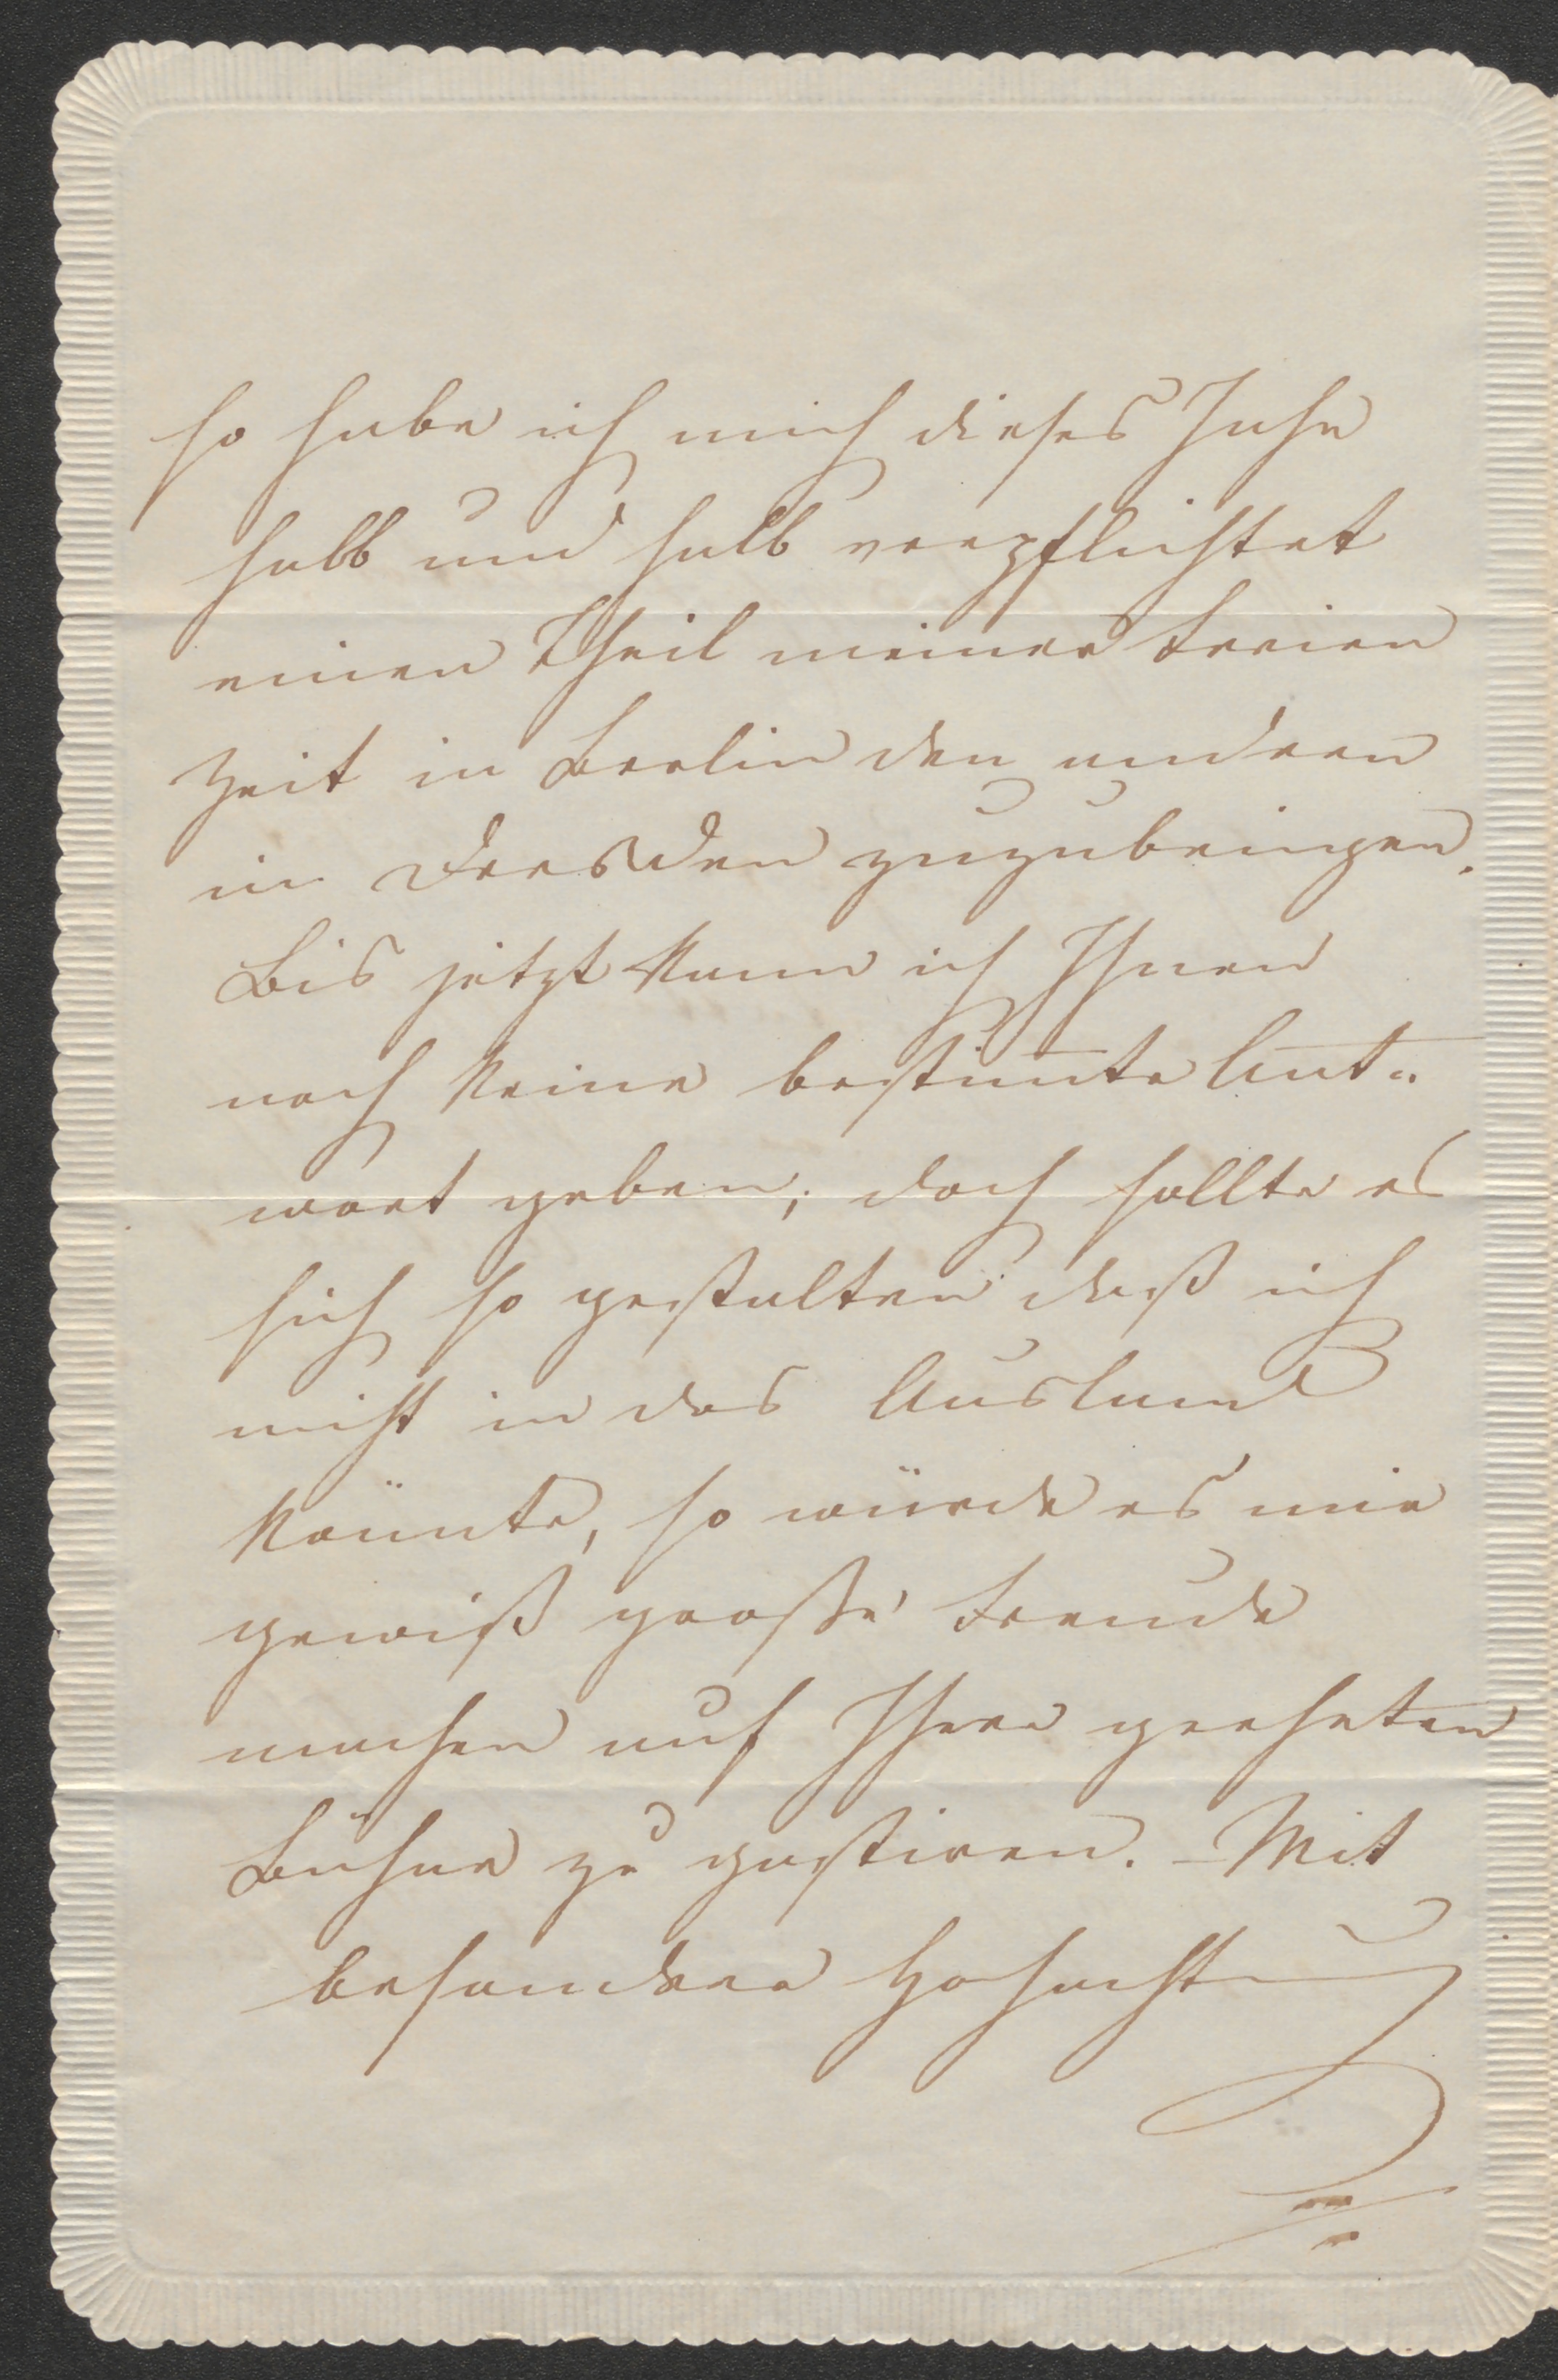 so habe ich mich dieses Jahr
halb und halb verpflichtet
einen Theil meiner freien
Zeit in Berlin den andern
in Dresden zuzubringen.
Bis jetzt kann ich Ihnen
noch keine bestim̅te Ant„
wort geben; doch sollte es
sich so gestalten daß ich
nicht in das Ausland
könnte, so würde es mir
gewiß große Freude
machen auf Ihrer geehrten
Bühne zu gastiren. – Mit
besondrer Hochachtung